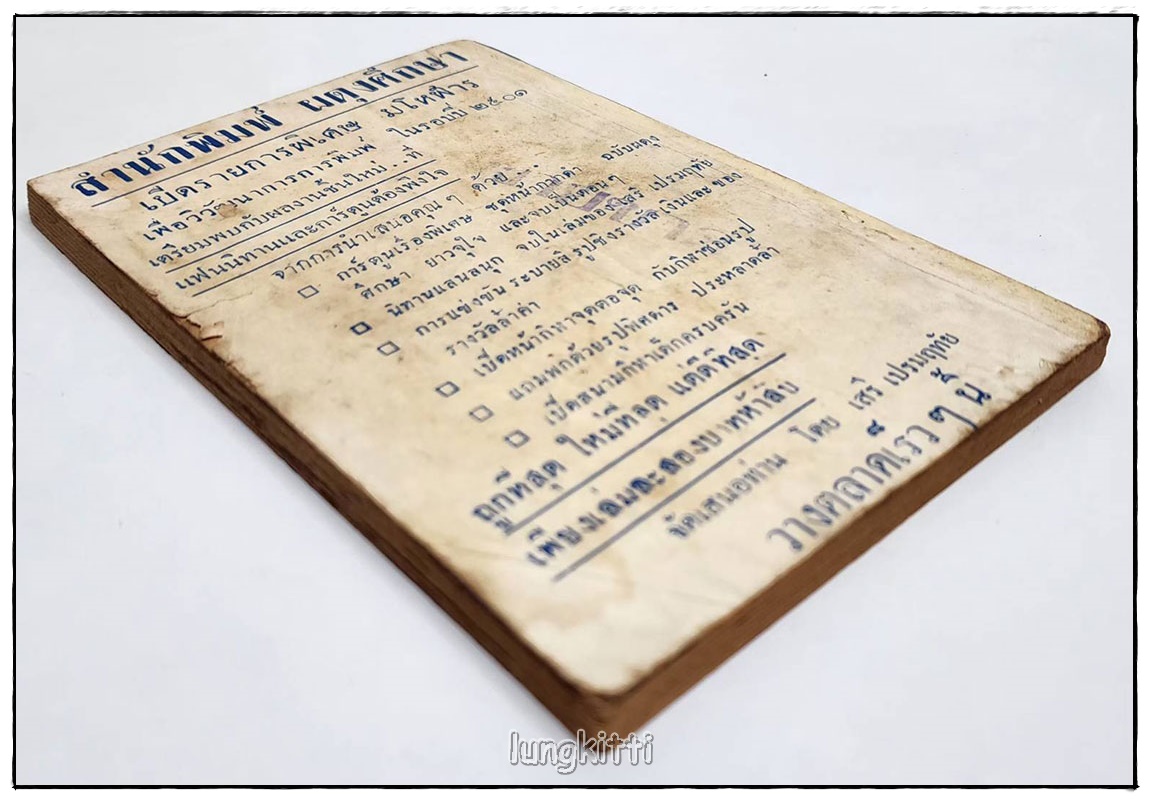 สำนักพิมพ์ ผดุงศึกษา
เปิดรายการพิเศษ มโหฬาร
เพื่อวิวัฒนาการการพิมพ์ ในรอบปี ๒๕๐๑
เตรียมพบกับผลงานชั้นใหม่..ที่
แฟนนิทานและการ์ตูนต้องพึงใจ
จากการนำเสนอคุณๆ ด้วย....
□ การ์ตูนเรื่องพิเศษ ชุดหน้ากากดำ ฉบับผดุง
ศึกษา ยาวจุใจ และจบเป็นตอนๆ
□ นิทานแสนสนุก จบในเล่มของ เสรี เปรมฤทัย
□ การแข่งขันระบายสี รูปชิงรางวัล เงินและ ของ
รางวัลล้ำค่า
□ เปิดหน้ากีฬาจุดต่อจุด กับกีฬาซ่อนรูป
□ แถมพกด้วยรูปพิสดาร ประหลาดล้ำ
□ เปิดสนามกีฬาเด็กครบครัน
ถูกที่สุด ใหม่ที่สุด แต่ดีที่สุด
เพียงเล่มละสองบาทห้าสิบ
จัดเสนอท่าน โดย เสรี เปรมฤทัย
วางตลาดเร็วๆ นี้
lungkitti